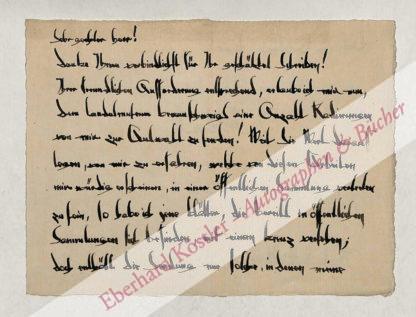 Sehr geehrter Herr!
Danke Ihnen verbindlichst für Ihr geschätztes Schreiben!
Ihrer freundlichen Aufforderung entsprechend, erlaube ich mir nun,
dem Landesmuseum braunschweig eine Anzahl Radierungen
von mir zur Auswahl zu senden!
von mir zu erfahren, welche von diesen Arbeiten
mir würdig erscheinen, in einer öffentlichen Sammlung vertreten
zu sein, so habe ich jene blätter, die bereits in öffentlichen
Sammlungen sich befinden mit einem kreuz versehen;
doch enthält die Sendung nur solche, in denen meine
Eberhard Köstler - Autographen & Bücher